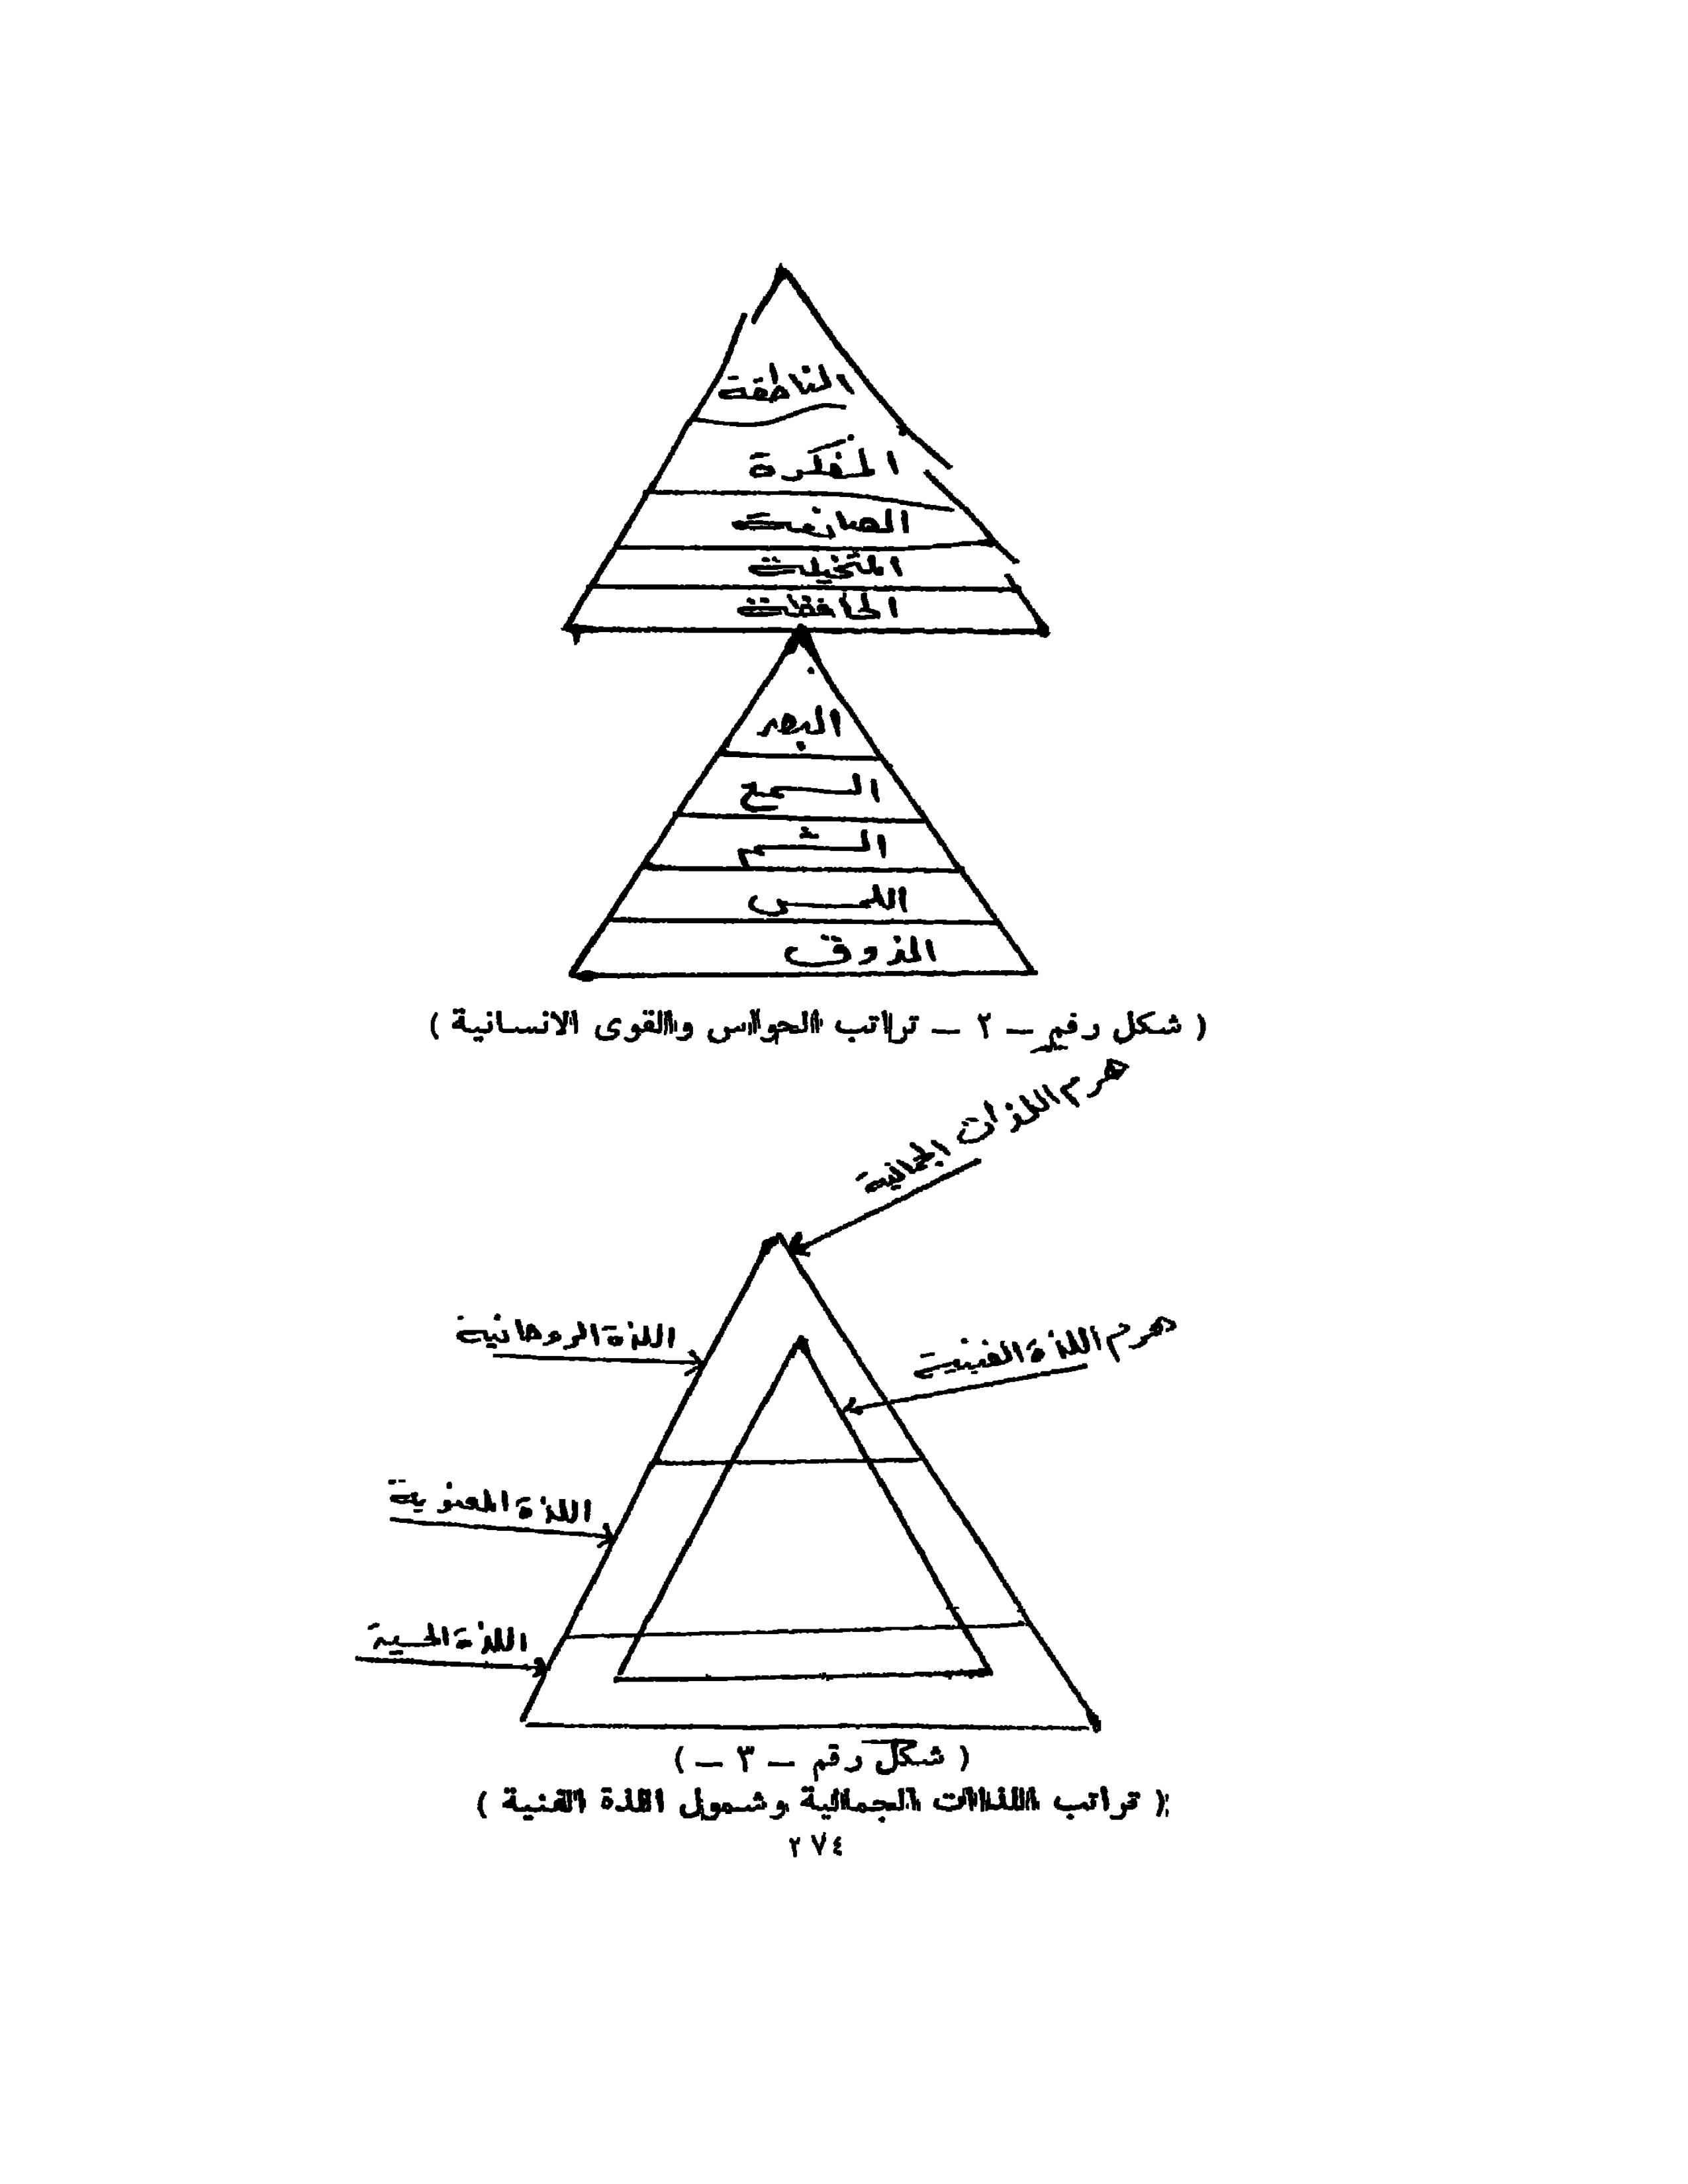 الناطقة
المفكرة
الصانعة
المتخيلة
الحافظة
البصر
السمع
الشم
اللمس
الذوق
( شكل رقم – ٢ – تراتب الحواس والقوى الانسانية )
هرم اللذات الجمالية
هرم اللذة الفنية
اللذة الروحانية
اللذة المعنوية
اللذة الحسية
( شكل رقم – ٣ – )
( تراتب اللذات الجمالية وشمول اللذة الفنية )
٢٧٤